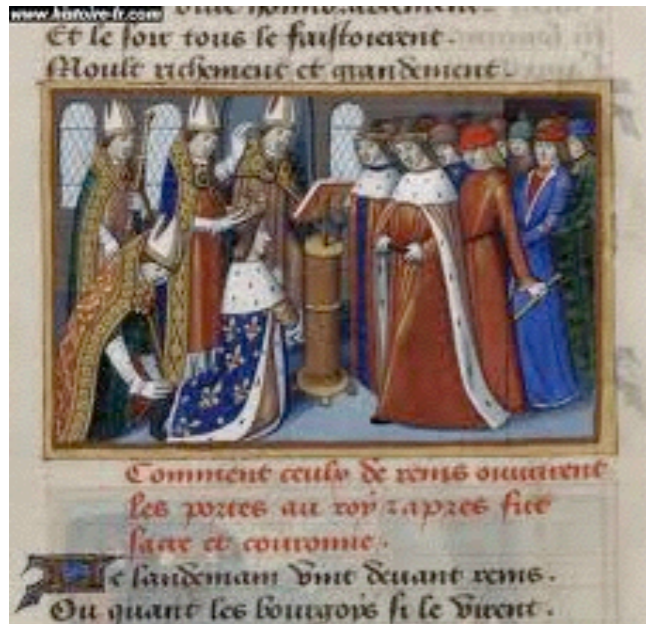 www.histoire-fr.com
Et le soir tous le faistoierent.
Moult richement et grandement.
Comment ceulx de reins ouvrirent
les portes au roy τ apres fut
sacre et couronne.
Le landemain vint devant reins.
Ou quant les bourgoys si le virent.